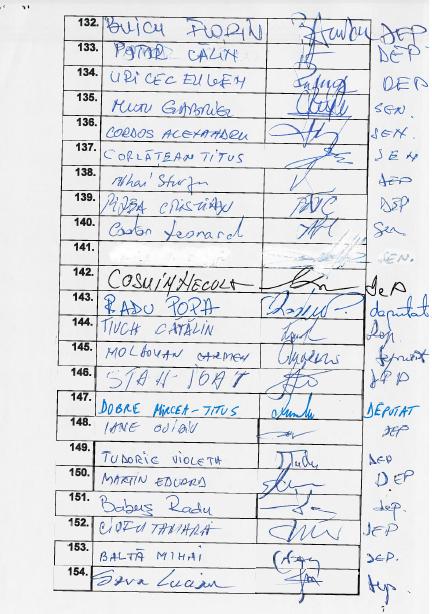 132. BUICU FLORIN DEP
133. POTOR CĂLIN DEP
134. URICEC EUGEN DEP
135. MUTU GABRIEL SEN.
136. CORDOȘ ALEXANDRU SEN.
137. CORLĂȚEAN TITUS SEN
138. Mihai Sturzu DEP
139. CRISTIAN DEP
140. Leonard Sen
141. SEN.
142. COSMIN NECULA DEP
143. RADU POPA deputat
144. TIUCH CĂTĂLIN Dep.
145. MOLDOVAN CARMEN
146. STAN IOAN DEP
147. DOBRE MIRCEA-TITUS DEPUTAT
148. IANE OVIDIU DEP
149. TUDORIE VIOLETA DEP
150. MARTIN EDUARD DEP
151. Babuș Radu dep.
152. TAMARA DEP
153. BALTĂ MIHAI DEP.
154. Sava Lucian dep.